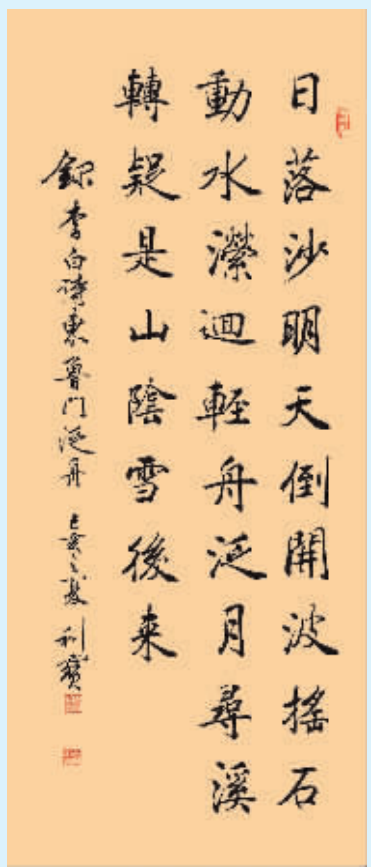 日落沙明天倒開波搖石
動水瀠迴輕舟泛月尋溪
轉疑是山陰雪後来
錄李白詩東魯門泛舟 己亥之秋 利寶